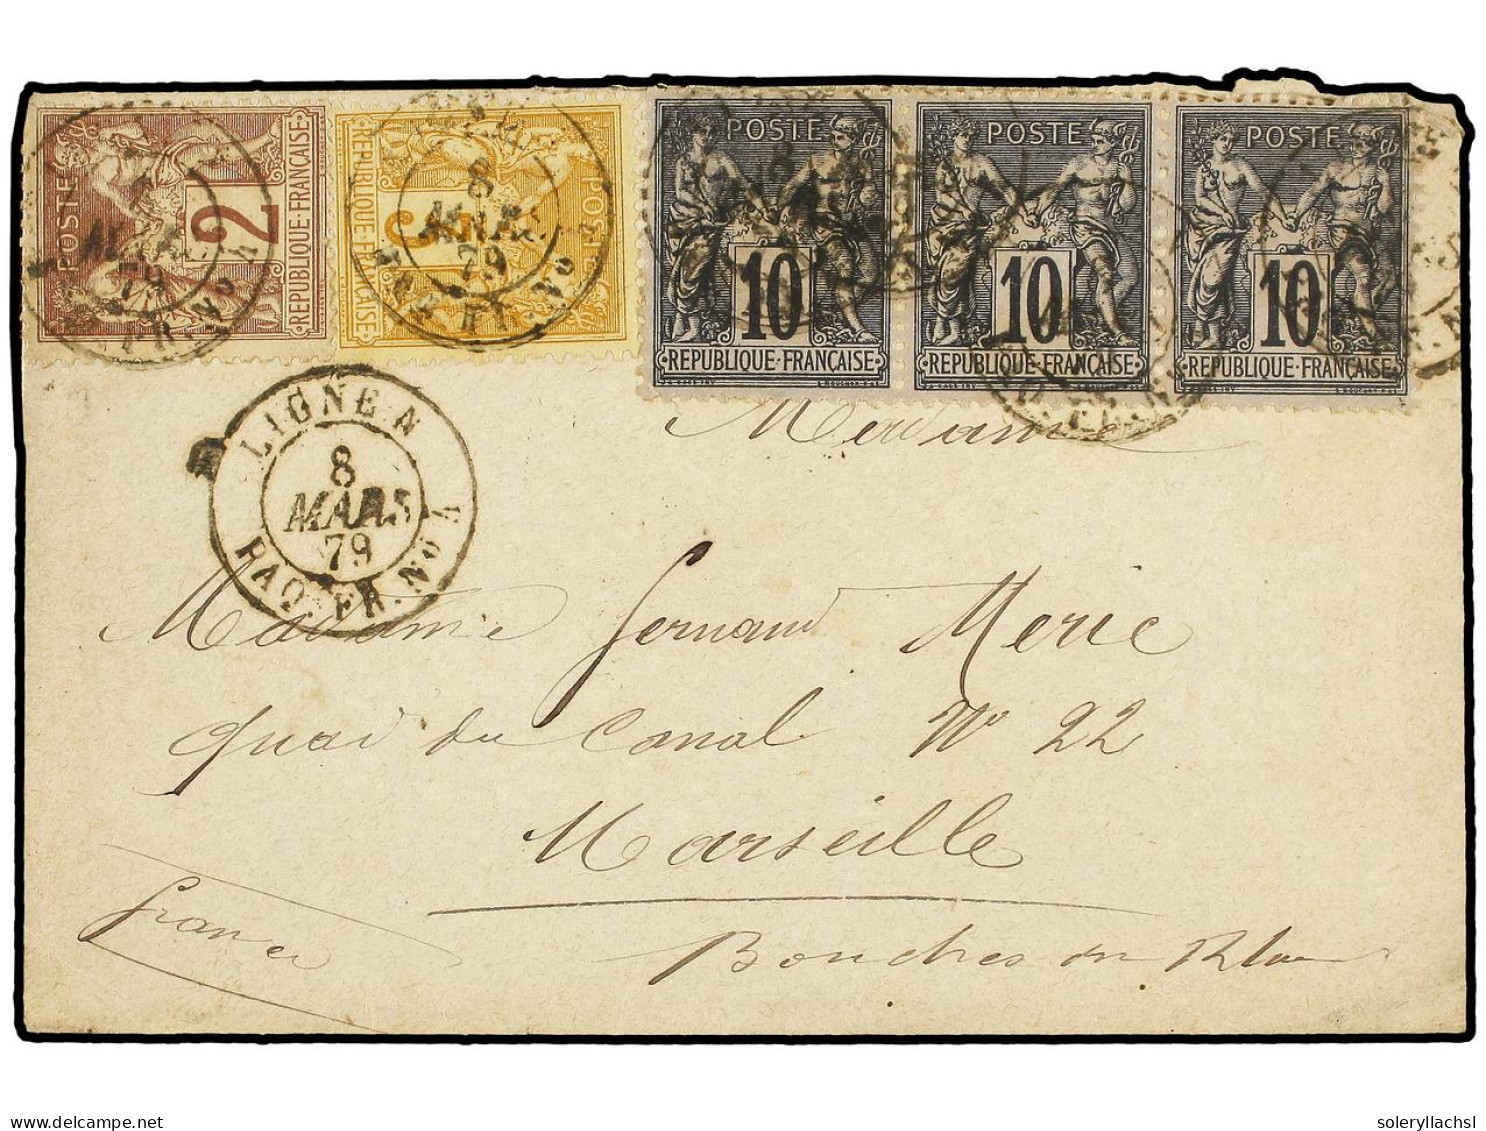 POSTE 2 REPUBLIQUE·FRANÇAISE
POSTE 3 REPUBLIQUE·FRANÇAISE
8 MARS 79
POSTE 10 REPUBLIQUE·FRANÇAISE
POSTE 10 REPUBLIQUE·FRANÇAISE
POSTE 10 REPUBLIQUE·FRANÇAISE
LIGNE N
8
MARS
79
PAQ. FR. No 4
Madame
Madame Fernand Meric
Quai du Canal No 22
Marseille
France
Bouches du Rhone
soleryllachsl